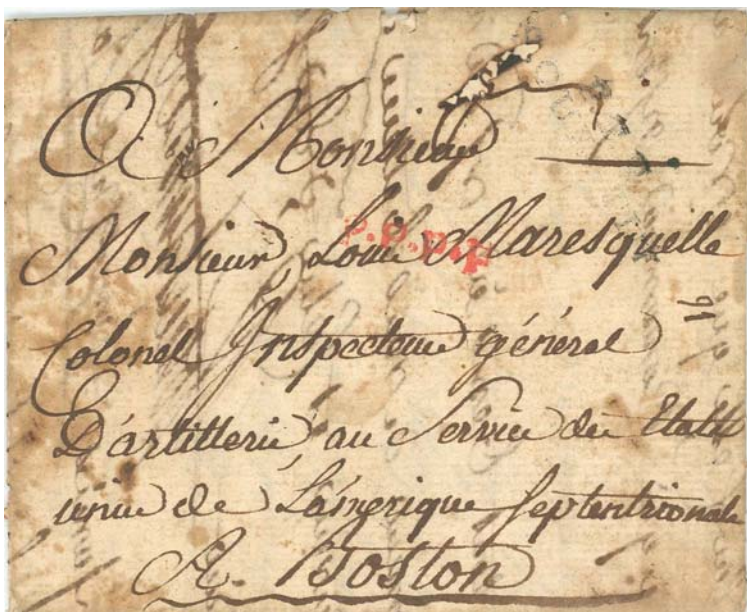 A Monsieur
Monsieur, Louis Maresquelle
P.P.P.P.
16
Colonel Inspecteur général
D'artillerie, au Service des Etats
unis de L'amerique Septentrionale
A. Boston